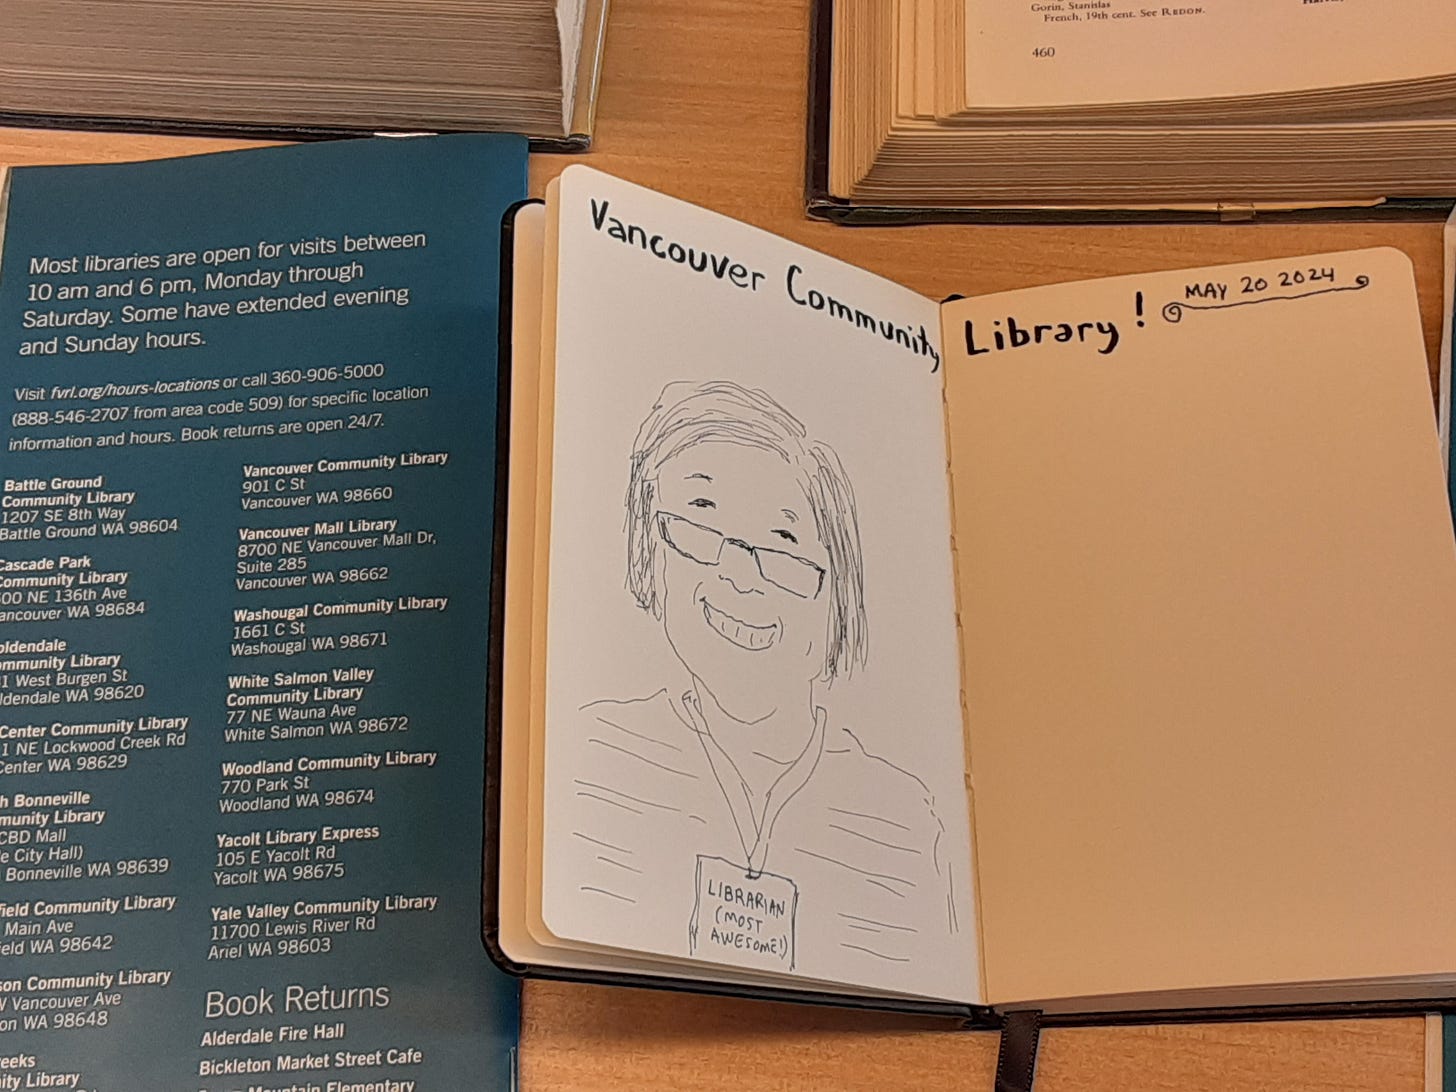 Gorin, Stanislas
French, 19th cent. See REDON.
460
Most libraries are open for visits between
10 am and 6 pm, Monday through
Saturday. Some have extended evening
and Sunday hours.
Visit fvrl.org/hours-locations or call 360-906-5000
(888-546-2707 from area code 509) for specific location
information and hours. Book returns are open 24/7.
Battle Ground
Community Library
1207 SE 8th Way
Battle Ground WA 98604
Cascade Park
Community Library
NE 136th Ave
WA 98684
Library
West Burgen St
WA 98620
Center Community Library
NE Lockwood Creek Rd
Center WA 98629
Bonneville
Library
CBD Mall
City Hall)
Bonneville WA 98639
Community Library
Main Ave
WA 98642
Community Library
Vancouver Ave
WA 98648
Library
Vancouver Community Library
901 C St
Vancouver WA 98660
Vancouver Mall Library
8700 NE Vancouver Mall Dr,
Suite 285
Vancouver WA 98662
Washougal Community Library
1661 C St
Washougal WA 98671
White Salmon Valley
Community Library
77 NE Wauna Ave
White Salmon WA 98672
Woodland Community Library
770 Park St
Woodland WA 98674
Yacolt Library Express
105 E Yacolt Rd
Yacolt WA 98675
Yale Valley Community Library
11700 Lewis River Rd
Ariel WA 98603
Book Returns
Alderdale Fire Hall
Bickleton Market Street Cafe
Mountain Elementary
Vancouver Community Library!
MAY 20 2024
LIBRARIAN
(MOST
AWESOME!)